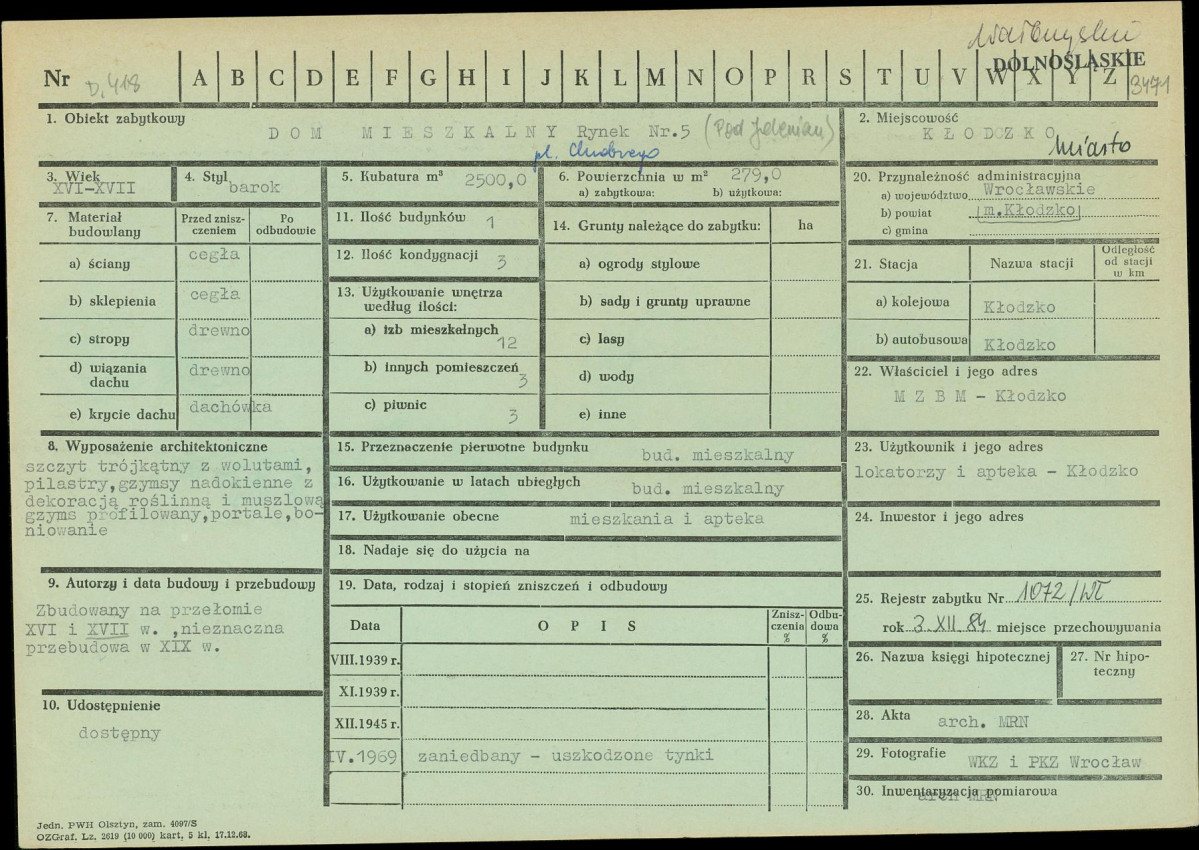 Wałbrzyskie
DOLNOŚLĄSKIE
Nr D.418 A B C D E F G H I J K L M N O P R S T U V W X Y Z 3471
1. Obiekt zabytkowy
DOM MIESZKALNY Rynek Nr.5 (Pod Jeleniem)
pl. Chrobrego
2. Miejscowość
KŁODZKO
miasto
3. Wiek
XVI-XVII
4. Styl
barok
5. Kubatura m³ 2500,0
6. Powierzchnia w m² 279,0
a) zabytkowa: b) użytkowa:
20. Przynależność administracyjna
a) województwo Wrocławskie
b) powiat m.Kłodzko
c) gmina
7. Materiał budowlany
Przed zniszczeniem
Po odbudowie
a) ściany cegła
b) sklepienia cegła
c) stropy drewno
d) wiązania dachu drewno
e) krycie dachu dachówka
11. Ilość budynków 1
12. Ilość kondygnacji 3
13. Użytkowanie wnętrza
według ilości:
a) izb mieszkalnych
12
b) innych pomieszczeń 3
c) piwnic 3
14. Grunty należące do zabytku: ha
a) ogrody stylowe
b) sady i grunty uprawne
c) lasy
d) wody
e) inne
21. Stacja Nazwa stacji Odległość od stacji w km
a) kolejowa Kłodzko
b) autobusowa Kłodzko
22. Właściciel i jego adres
M Z B M - Kłodzko
8. Wyposażenie architektoniczne
szczyt trójkątny z wolutami,
pilastry,gzymsy nadokienne z
dekoracją roślinną i muszlową
gzyms profilowany,portale,bo-
niowanie
15. Przeznaczenie pierwotne budynku bud. mieszkalny
16. Użytkowanie w latach ubiegłych bud. mieszkalny
17. Użytkowanie obecne mieszkania i apteka
18. Nadaje się do użycia na
23. Użytkownik i jego adres
lokatorzy i apteka - Kłodzko
24. Inwestor i jego adres
9. Autorzy i data budowy i przebudowy
Zbudowany na przełomie
XVI i XVII w. ,nieznaczna
przebudowa w XIX w.
19. Data, rodzaj i stopień zniszczeń i odbudowy
Data OPIS Zniszczenia % Odbudowa %
VIII.1939 r.
XI.1939 r.
XII.1945 r.
IV.1969 zaniedbany - uszkodzone tynki
25. Rejestr zabytku Nr 1072/WŁ
rok 3 XII 84 miejsce przechowywania
26. Nazwa księgi hipotecznej
27. Nr hipoteczny
10. Udostępnienie
dostępny
28. Akta arch. MRN
29. Fotografie WKZ i PKZ Wrocław
30. Inwentaryzacja pomiarowa
arch MRN
Jedn. PWH Olsztyn, zam. 4097/S
OZGraf. Lz. 2619 (10 000) kart. 5 kl. 17.12.68.